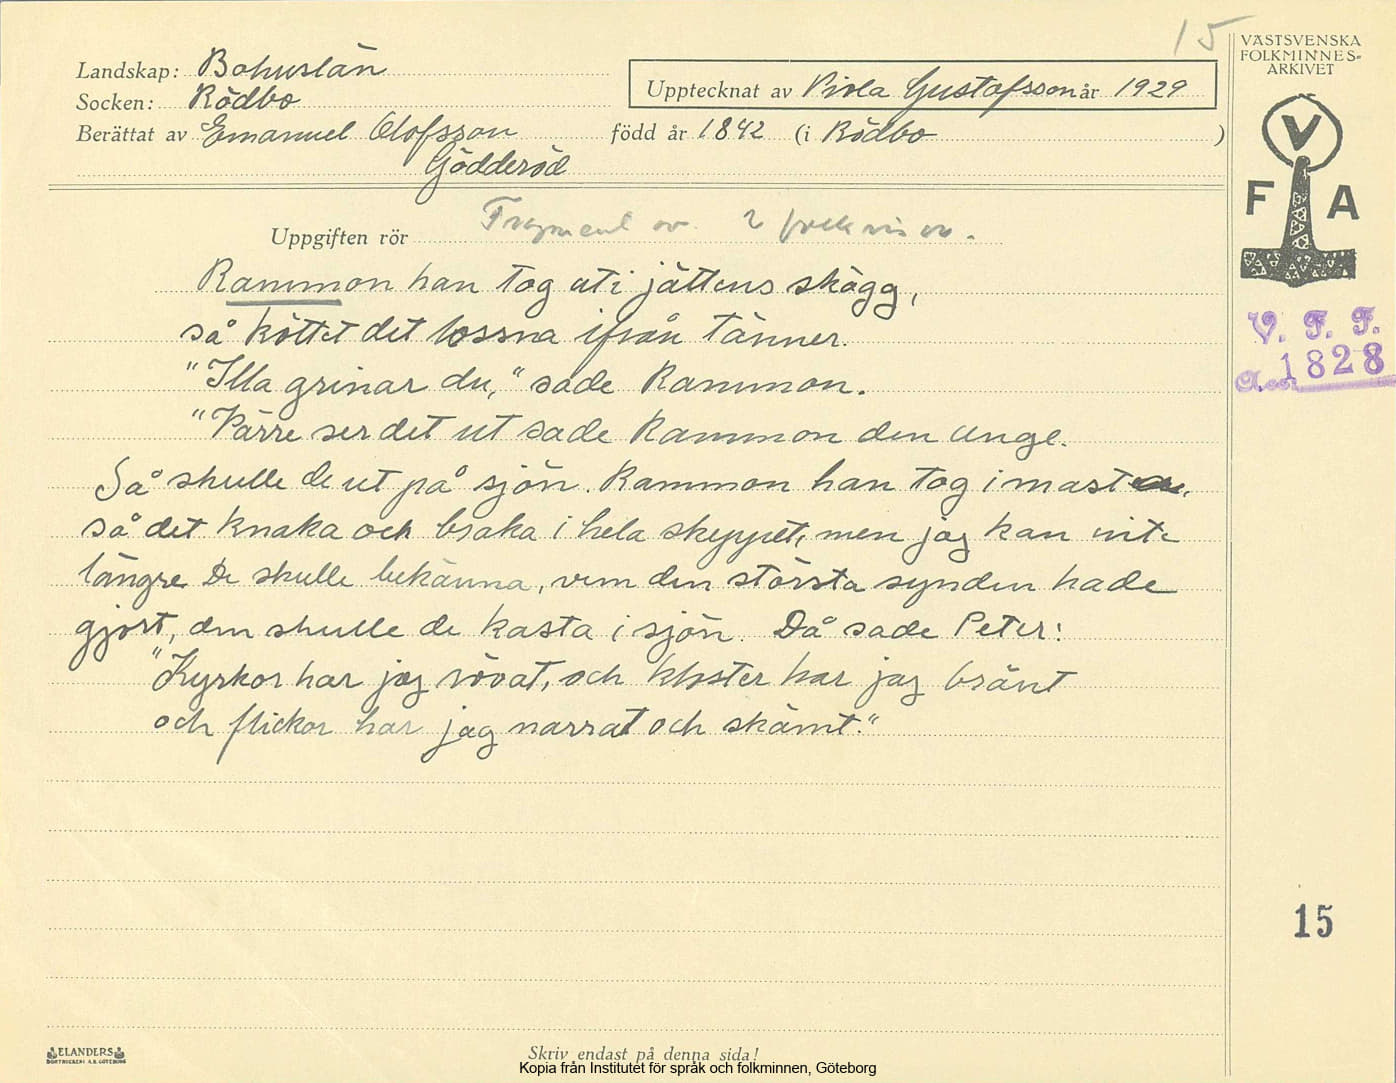 15
VÄSTSVENSKA
FOLKMINNES-
ARKIVET
Landskap: Bohuslän
Socken: Rödbo
Upptecknat av Viola Gustafsson år 1929
Berättat av Emanuel Olofsson född år 1842 (i Rödbo )
Gödderöd
V
F A
Uppgiften rör Fragment av 2 folkvisor.
V. F. F.
Acc. 1828
Rammon han tog uti jättens skägg,
så köttet det lossna ifrån tänner.
"Illa grinar du," sade Rammon.
"Värre ser det ut sade Rammon den unge.
Så skulle de ut på sjön. Rammon han tog i masten,
så det knaka och braka i hela skeppet, men jag kan inte
längre De skulle bekänna, vem den största synden hade
gjort, den skulle de kasta i sjön. Då sade Peter:
"Kyrkor har jag rövat, och kloster har jag bränt
och flickor har jag narrat och skämt."
15
ELANDERS
BOKTRYCKERI A.B. GÖTEBORG
Skriv endast på denna sida!
Kopia från Institutet för språk och folkminnen, Göteborg